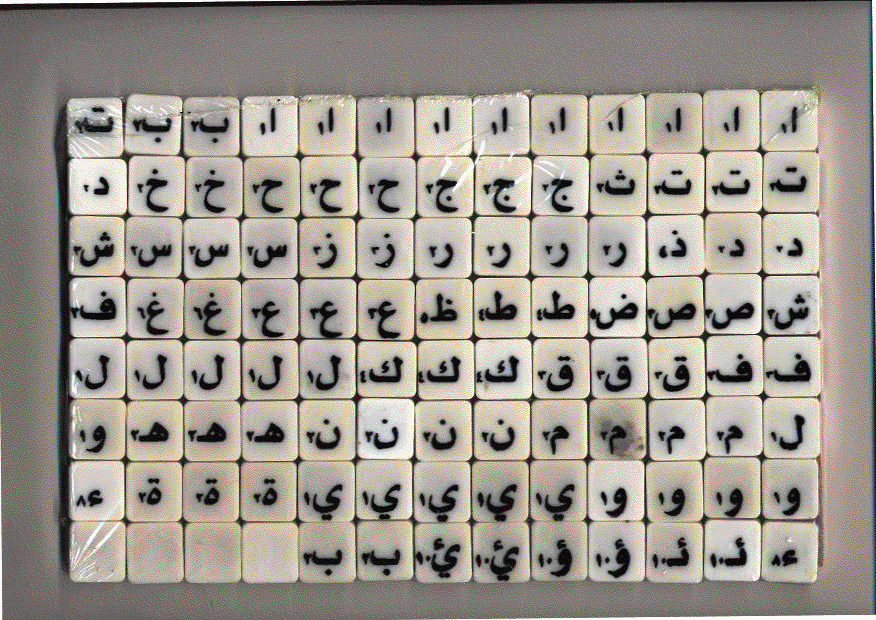 ا١ ا١ ا١ ا١ ا١ ا١ ا١ ا١ ا١ ا١ ب٢ ب٢ ت٢
ت٢ ت٢ ت٢ ث٣ ج٢ ج٢ ج٢ ح٢ ح٢ ح٢ خ٢ خ٢ د٢
د٢ د٢ ذ٤ ر٢ ر٢ ر٢ ر٢ ز٣ ز٣ س٣ س٣ س٣ ش٣
ش٣ ص٣ ص٣ ض٥ ط٤ ط٤ ظ٥ ع٣ ع٣ ع٣ غ٦ غ٦ ف٣
ف٣ ف٣ ق٣ ق٣ ق٣ ك٤ ك٤ ك٤ ل١ ل١ ل١ ل١ ل١
ل١ م٢ م٢ م٢ م٢ ن٢ ن٢ ن٢ ن٢ هـ٢ هـ٢ هـ٢ و١
و١ و١ و١ و١ ي١ ي١ ي١ ي١ ي١ ة٢ ة٢ ة٢ ء٨
ء٨ ئـ١٠ ئـ١٠ ؤ١٠ ؤ١٠ ئ١٠ ئ١٠ ب٢ ب٢